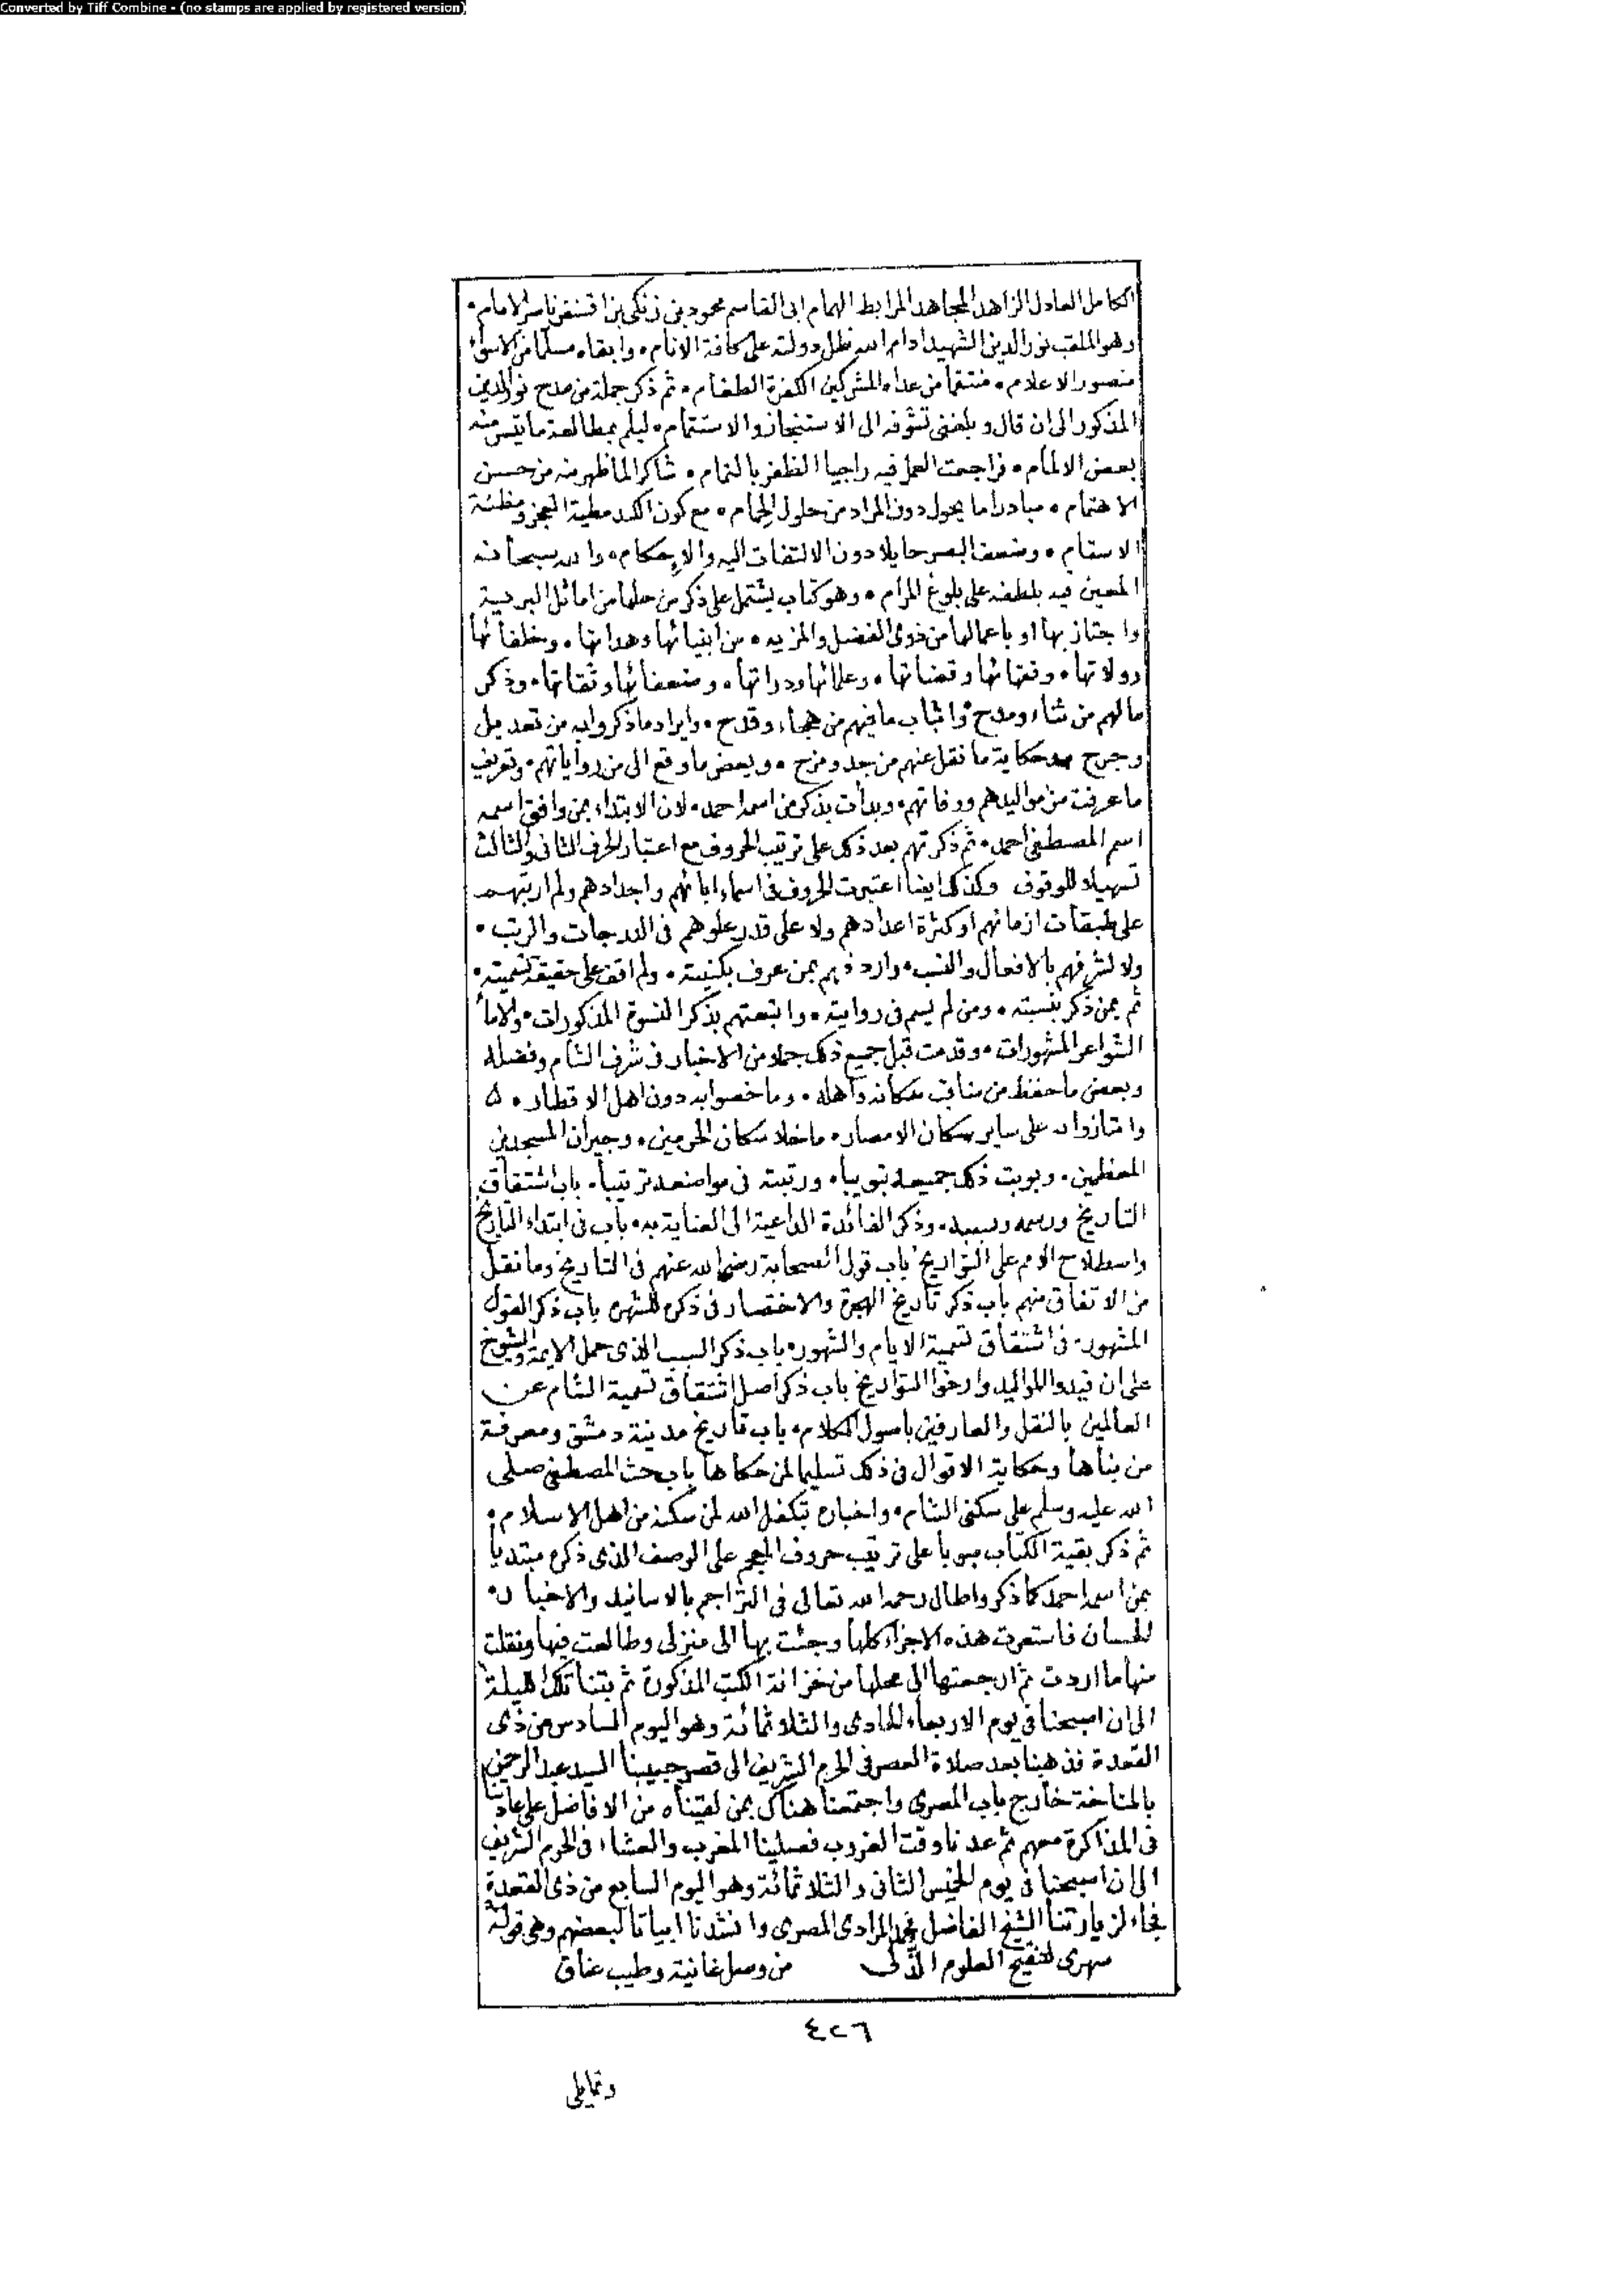 Converted by Tiff Combine - (no stamps are applied by registered version)
الكامل العادل الزاهد المجاهد المرابط الهمام ابى القاسم محمود بن زنكى بن اقسنقر ناصر الامام •
وهو الملقب نور الدين الشهيد ادام الله ظل دولته على كافة الانام • وابقاه مسلما من الاسواء
منصور الاعلام • منتقما من عداه المشركين الكفرة الطغام • ثم ذكر جملة من مدح نور الدين
المذكور الى ان قال وبلغنى تشوفه الى الاستنجاز والاستتمام • ليلم بمطالعة ما تيسر منه
بعض الالمام • فراجعت العمل فيه راجيا الظفر بالتمام • شاكرا لما ظهر منه من حسن
الاهتمام • مبادرا ما يحول دون المراد من حلول الحمام • مع كون الكبر مطية العجز ومظنة
الاسقام • وضعف البصر حايلا دون الالتفات اليه والاحكام • والله سبحانه
المعين فيه بلطفه على بلوغ المرام • وهو كتاب يشتمل على ذكر من حلها من اماثل البرية
واجتاز بها او باعمالها من ذوى الفضل والمزيه • من انبيائها وهداتها • وخلفائها
وولاتها • وفقهائها وقضاتها • وعلمائها ودراتها • وضعفائها وثقاتها • وذكر
ما لهم من ثناء ومدح • واثبات ما فيهم من هجاء وقدح • وايراد ما ذكروا به من تعديل
وجرح وحكاية ما نقل عنهم من جد ومزح • وبعض ما وقع الى من رواياتهم • وتعريف
ما عرفت من مواليدهم ووفاتهم • وبدأت بذكر من اسمه احمد • لان الابتداء بمن وافق اسمه
اسم المصطفى احمد • ثم ذكرتهم بعد ذلك على ترتيب الحروف مع اعتبار الحرف الثانى والثالث
تسهيلا للوقوف وكذلك ايضا اعتبرت الحروف فى اسماء ابائهم واجدادهم ولم ارتبهم
على طبقات ازمانهم او كثرة اعدادهم ولا على قدر علوهم فى الدرجات والرتب •
ولا لشرفهم بالافعال والنسب • واردفهم بمن عرف بكنيته • ولم اقف على حقيقة تسميته •
ثم بمن ذكر بنسبته • ومن لم يسم فى روايته • واتبعتهم بذكر النسوة المذكورات • والاما
الشواعر المشهورات • وقدمت قبل جميع ذلك جملة من الاخبار فى شرف الشام وفضله
وبعض ما حفظ من مناقب سكانه واهله • وما خصوا به دون اهل الاقطار •
وامتازوا به على ساير سكان الامصار • ما خلا سكان الحرمين • وجيران المسجدين
المعظمين • وبوبت ذلك جميعه تبويبا • ورتبته فى مواضعه ترتيبا • باب اشتقاق
التاريخ ورسمه وسببه • وذكر الفائدة الداعية الى العناية به • باب فى ابتداء التاريخ
واصطلاح الامم على التواريخ باب قول الصحابة رضى الله عنهم فى التاريخ وما نقل
من الاتفاق منهم باب ذكر تاريخ الهجرة والاختصار فى ذكره للشهره باب ذكر القول
المشهور • فى اشتقاق تسمية الايام والشهور • باب ذكر السبب الذى حمل الايمة والشيوخ
على ان قيدوا المواليد وارخوا التواريخ باب ذكر اصل اشتقاق تسمية الشام عن
العالمين بالنقل والعارفين باصول الكلام • باب تاريخ مدينة دمشق ومعرفة
من بناها وحكاية الاقوال فى ذلك تسليما لمن حكاها باب حث المصطفى صلى
الله عليه وسلم على سكنى الشام • واخباره بتكفل الله لمن سكنه من اهل الاسلام •
ثم ذكر بقية الكتاب مبوبا على ترتيب حروف المعجم على الوصف الذى ذكره مبتديا
بمن اسمه احمد كما ذكر واطال رحمه الله تعالى فى التراجم بالاسانيد والاخبار •
الحسان فاستعرت هذه الاجزاء كلها وجئت بها الى منزلى وطالعت فيها ونقلت
منها ما اردت ثم ارجعتها الى محلها من خزانة الكتب المذكورة ثم بتنا تلك الليلة
الى ان اصبحنا فى يوم الاربعاء الحادى والثلاثمائة وهو اليوم السادس من ذى
القعدة فذهبنا بعد صلاة العصر فى الحرم الشريف الى قصر حبيبنا السيد عبد الرحمن
بالمناخة خارج باب المصرى واجتمعنا هناك بمن لقيناه من الافاضل على عادتنا
فى المذاكرة معهم ثم عدنا وقت الغروب فصلينا المغرب والعشاء فى الحرم الشريف
الى ان اصبحنا فى يوم الخميس الثانى والثلاثمائة وهو اليوم السابع من ذى القعدة
فجاء لزيارتنا الشيخ الفاضل محمد المرادى المصرى وانشدنا ابياتا لبعضهم وهى قوله
سهرى لتنقيح العلوم الذ لى من وصل غانية وطيب عناق
٤٢٦
وتمايلى